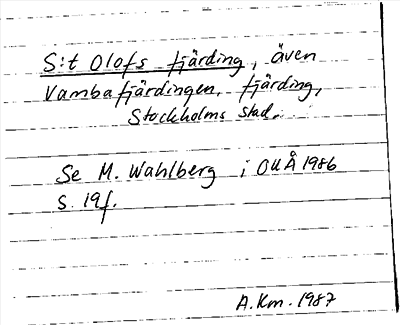 S:t Olofs fjärding, även
Vambafjärdingen, fjärding,
Stockholms stad.
Se M. Wahlberg i OUÅ 1986
s. 19f.
A.Km. 1987